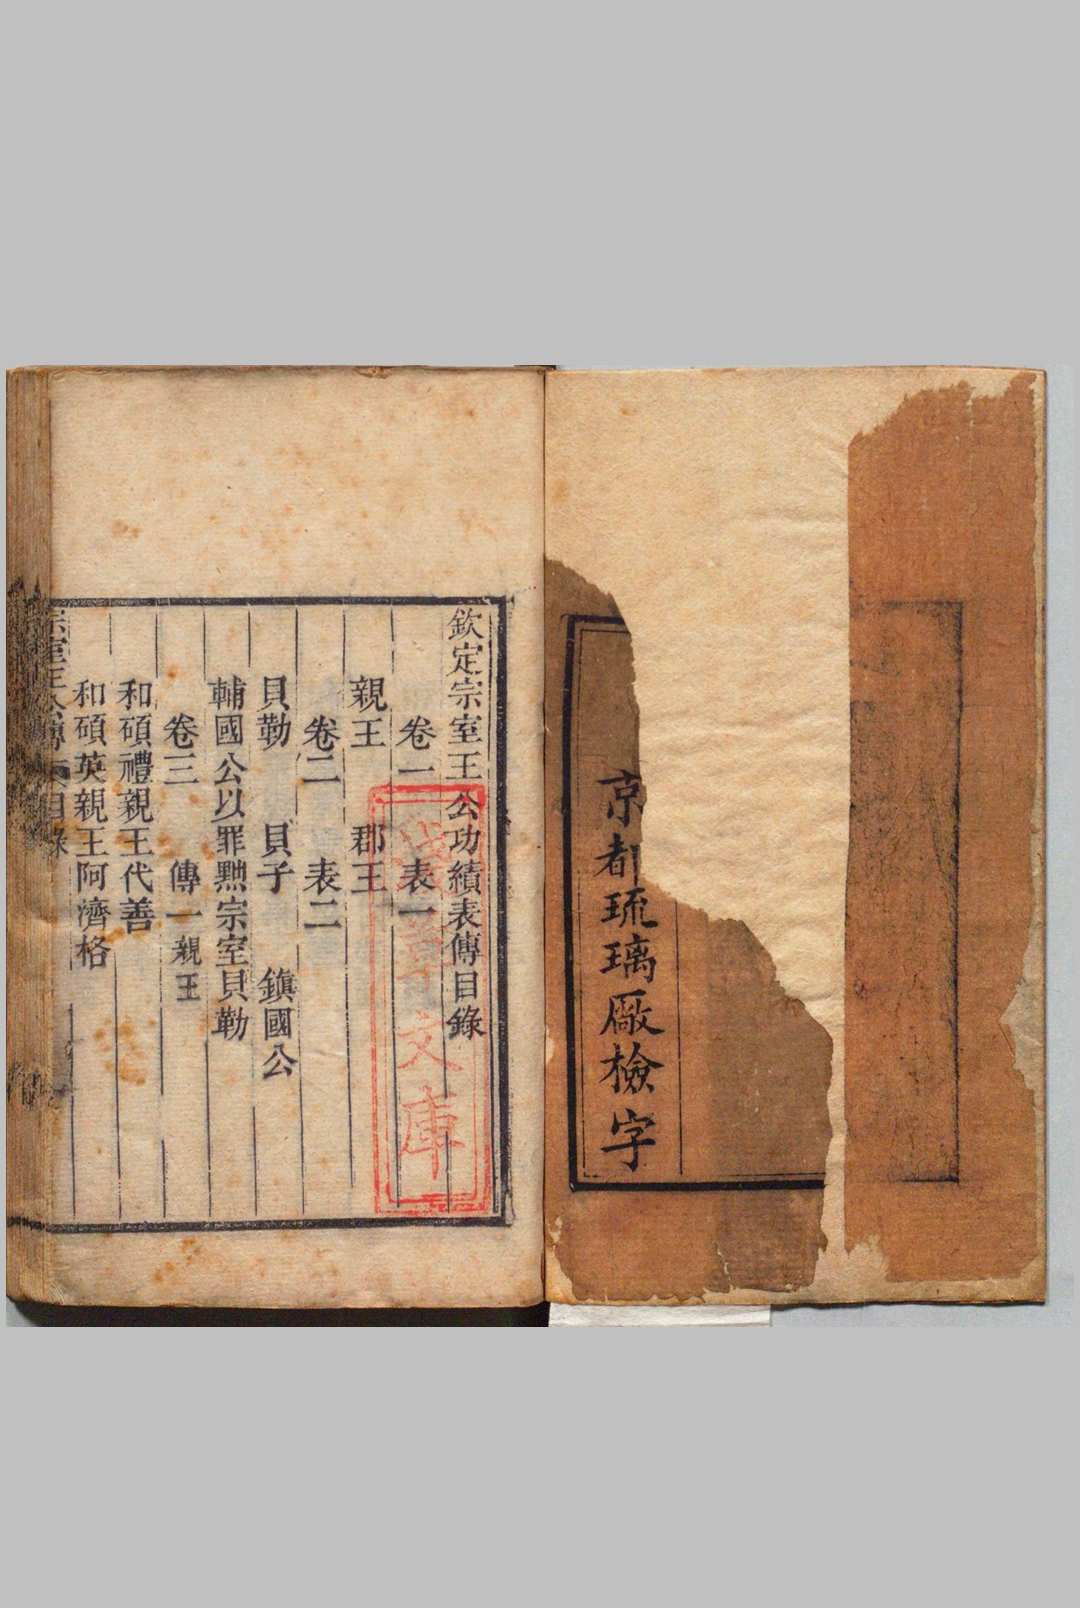 京都琉璃厰檢字
欽定宗室王公功績表傳目錄
卷一　表一
親王　郡王
卷二　表二
貝勒　貝子　鎮國公
輔國公以罪黜宗室貝勒
卷三　傳一親王
和碩禮親王代善
和碩英親王阿濟格
宗室王公傳　目錄
文庫